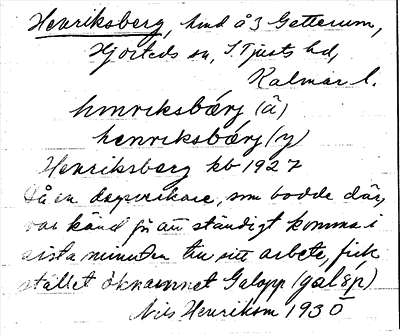 Henriksberg, hmd å 3 Getterum,
Hjorteds sn, S. Tjusts hd,
Kalmar l.
hinriksbærj (ä)
henriksbærj (y)
Henriksberg kb 1927
Då en dagsverkare, som bodde där,
var känd för att ständigt komma i
sista minuten till sitt arbete, fick
stället öknamnet Galopp (galǫp)
Nils Henrikson 1930